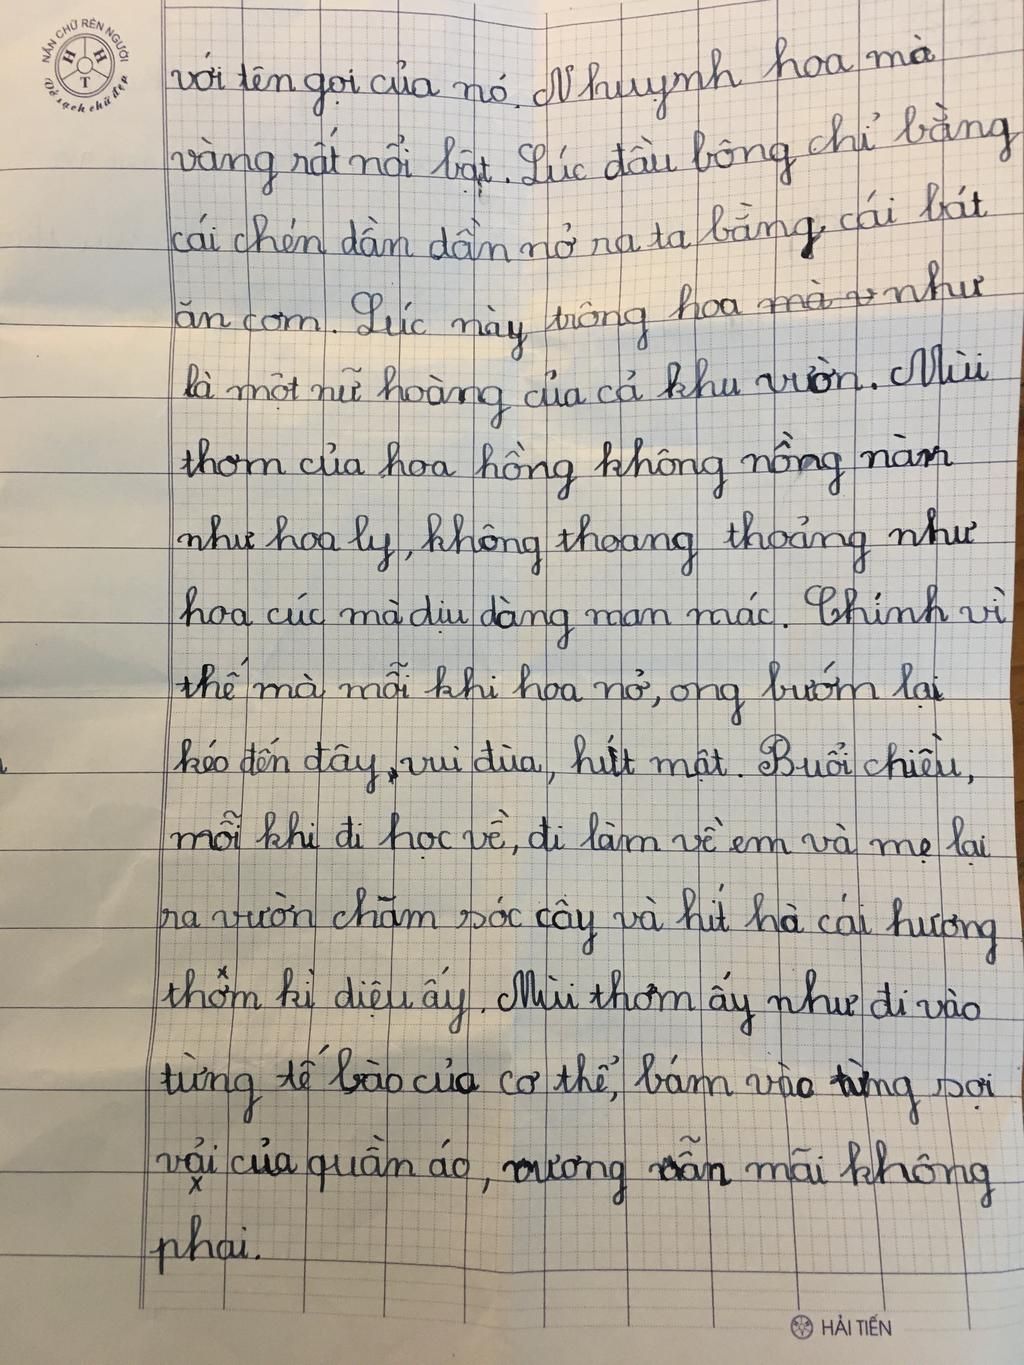 NẮN CHỮ RÈN NGƯỜI
H H T
Vở sạch chữ đẹp
với tên gọi của nó. Nhuỵnh hoa mà
vàng rất nổi bật. Lúc đầu bông chỉ bằng
cái chén dần dần nở ra ta bằng cái bát
ăn cơm. Lúc này trông hoa mà như
là một nữ hoàng của cả khu vườn. Mùi
thơm của hoa hồng không nồng nàn
như hoa ly, không thoang thoảng như
hoa cúc mà dịu dàng man mác. Chính vì
thế mà mỗi khi hoa nở, ong bướm lại
kéo đến đây, vui đùa, hút mật. Buổi chiều,
mỗi khi đi học về, đi làm về em và mẹ lại
ra vườn chăm sóc cây và hít hà cái hương
thơm kì diệu ấy. Mùi thơm ấy như đi vào
từng tế bào của cơ thể, bám vào từng sợi
vải của quần áo, vương vẫn mãi không
phai.
HẢI TIẾN